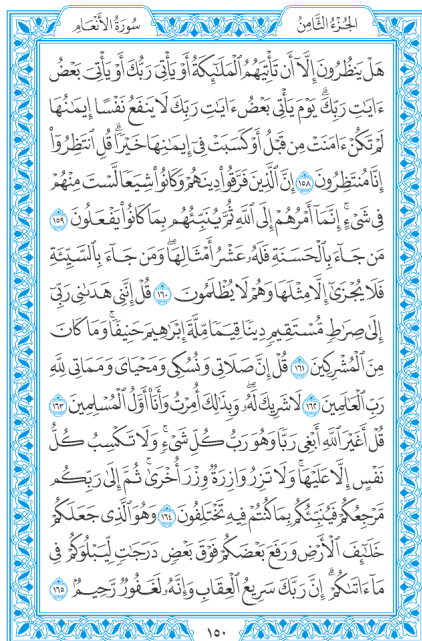 سُورَةُ الأَنْعَامِ
الجُزْءُ الثَّامِنُ
هَلْ يَنظُرُونَ إِلَّآ أَن تَأْتِيَهُمُ ٱلْمَلَـٰٓئِكَةُ أَوْ يَأْتِىَ رَبُّكَ أَوْ يَأْتِىَ بَعْضُ
ءَايَـٰتِ رَبِّكَ ۗ يَوْمَ يَأْتِى بَعْضُ ءَايَـٰتِ رَبِّكَ لَا يَنفَعُ نَفْسًا إِيمَـٰنُهَا
لَمْ تَكُنْ ءَامَنَتْ مِن قَبْلُ أَوْ كَسَبَتْ فِىٓ إِيمَـٰنِهَا خَيْرًا ۗ قُلِ ٱنتَظِرُوٓا۟
إِنَّا مُنتَظِرُونَ ١٥٨ إِنَّ ٱلَّذِينَ فَرَّقُوا۟ دِينَهُمْ وَكَانُوا۟ شِيَعًا لَّسْتَ مِنْهُمْ
فِى شَىْءٍ ۚ إِنَّمَآ أَمْرُهُمْ إِلَى ٱللَّهِ ثُمَّ يُنَبِّئُهُم بِمَا كَانُوا۟ يَفْعَلُونَ ١٥٩
مَن جَآءَ بِٱلْحَسَنَةِ فَلَهُۥ عَشْرُ أَمْثَالِهَا ۖ وَمَن جَآءَ بِٱلسَّيِّئَةِ
فَلَا يُجْزَىٰٓ إِلَّا مِثْلَهَا وَهُمْ لَا يُظْلَمُونَ ١٦٠ قُلْ إِنَّنِى هَدَىٰنِى رَبِّىٓ
إِلَىٰ صِرَٰطٍ مُّسْتَقِيمٍ دِينًا قِيَمًا مِّلَّةَ إِبْرَٰهِيمَ حَنِيفًا ۚ وَمَا كَانَ
مِنَ ٱلْمُشْرِكِينَ ١٦١ قُلْ إِنَّ صَلَاتِى وَنُسُكِى وَمَحْيَاىَ وَمَمَاتِى لِلَّهِ
رَبِّ ٱلْعَـٰلَمِينَ ١٦٢ لَا شَرِيكَ لَهُۥ ۖ وَبِذَٰلِكَ أُمِرْتُ وَأَنَا۠ أَوَّلُ ٱلْمُسْلِمِينَ ١٦٣
قُلْ أَغَيْرَ ٱللَّهِ أَبْغِى رَبًّا وَهُوَ رَبُّ كُلِّ شَىْءٍ ۚ وَلَا تَكْسِبُ كُلُّ
نَفْسٍ إِلَّا عَلَيْهَا ۚ وَلَا تَزِرُ وَازِرَةٌ وِزْرَ أُخْرَىٰ ۚ ثُمَّ إِلَىٰ رَبِّكُم
مَّرْجِعُكُمْ فَيُنَبِّئُكُم بِمَا كُنتُمْ فِيهِ تَخْتَلِفُونَ ١٦٤ وَهُوَ ٱلَّذِى جَعَلَكُمْ
خَلَـٰٓئِفَ ٱلْأَرْضِ وَرَفَعَ بَعْضَكُمْ فَوْقَ بَعْضٍ دَرَجَـٰتٍ لِّيَبْلُوَكُمْ فِى
مَآ ءَاتَىٰكُمْ ۗ إِنَّ رَبَّكَ سَرِيعُ ٱلْعِقَابِ وَإِنَّهُۥ لَغَفُورٌ رَّحِيمٌۢ ١٦٥
١٥٠